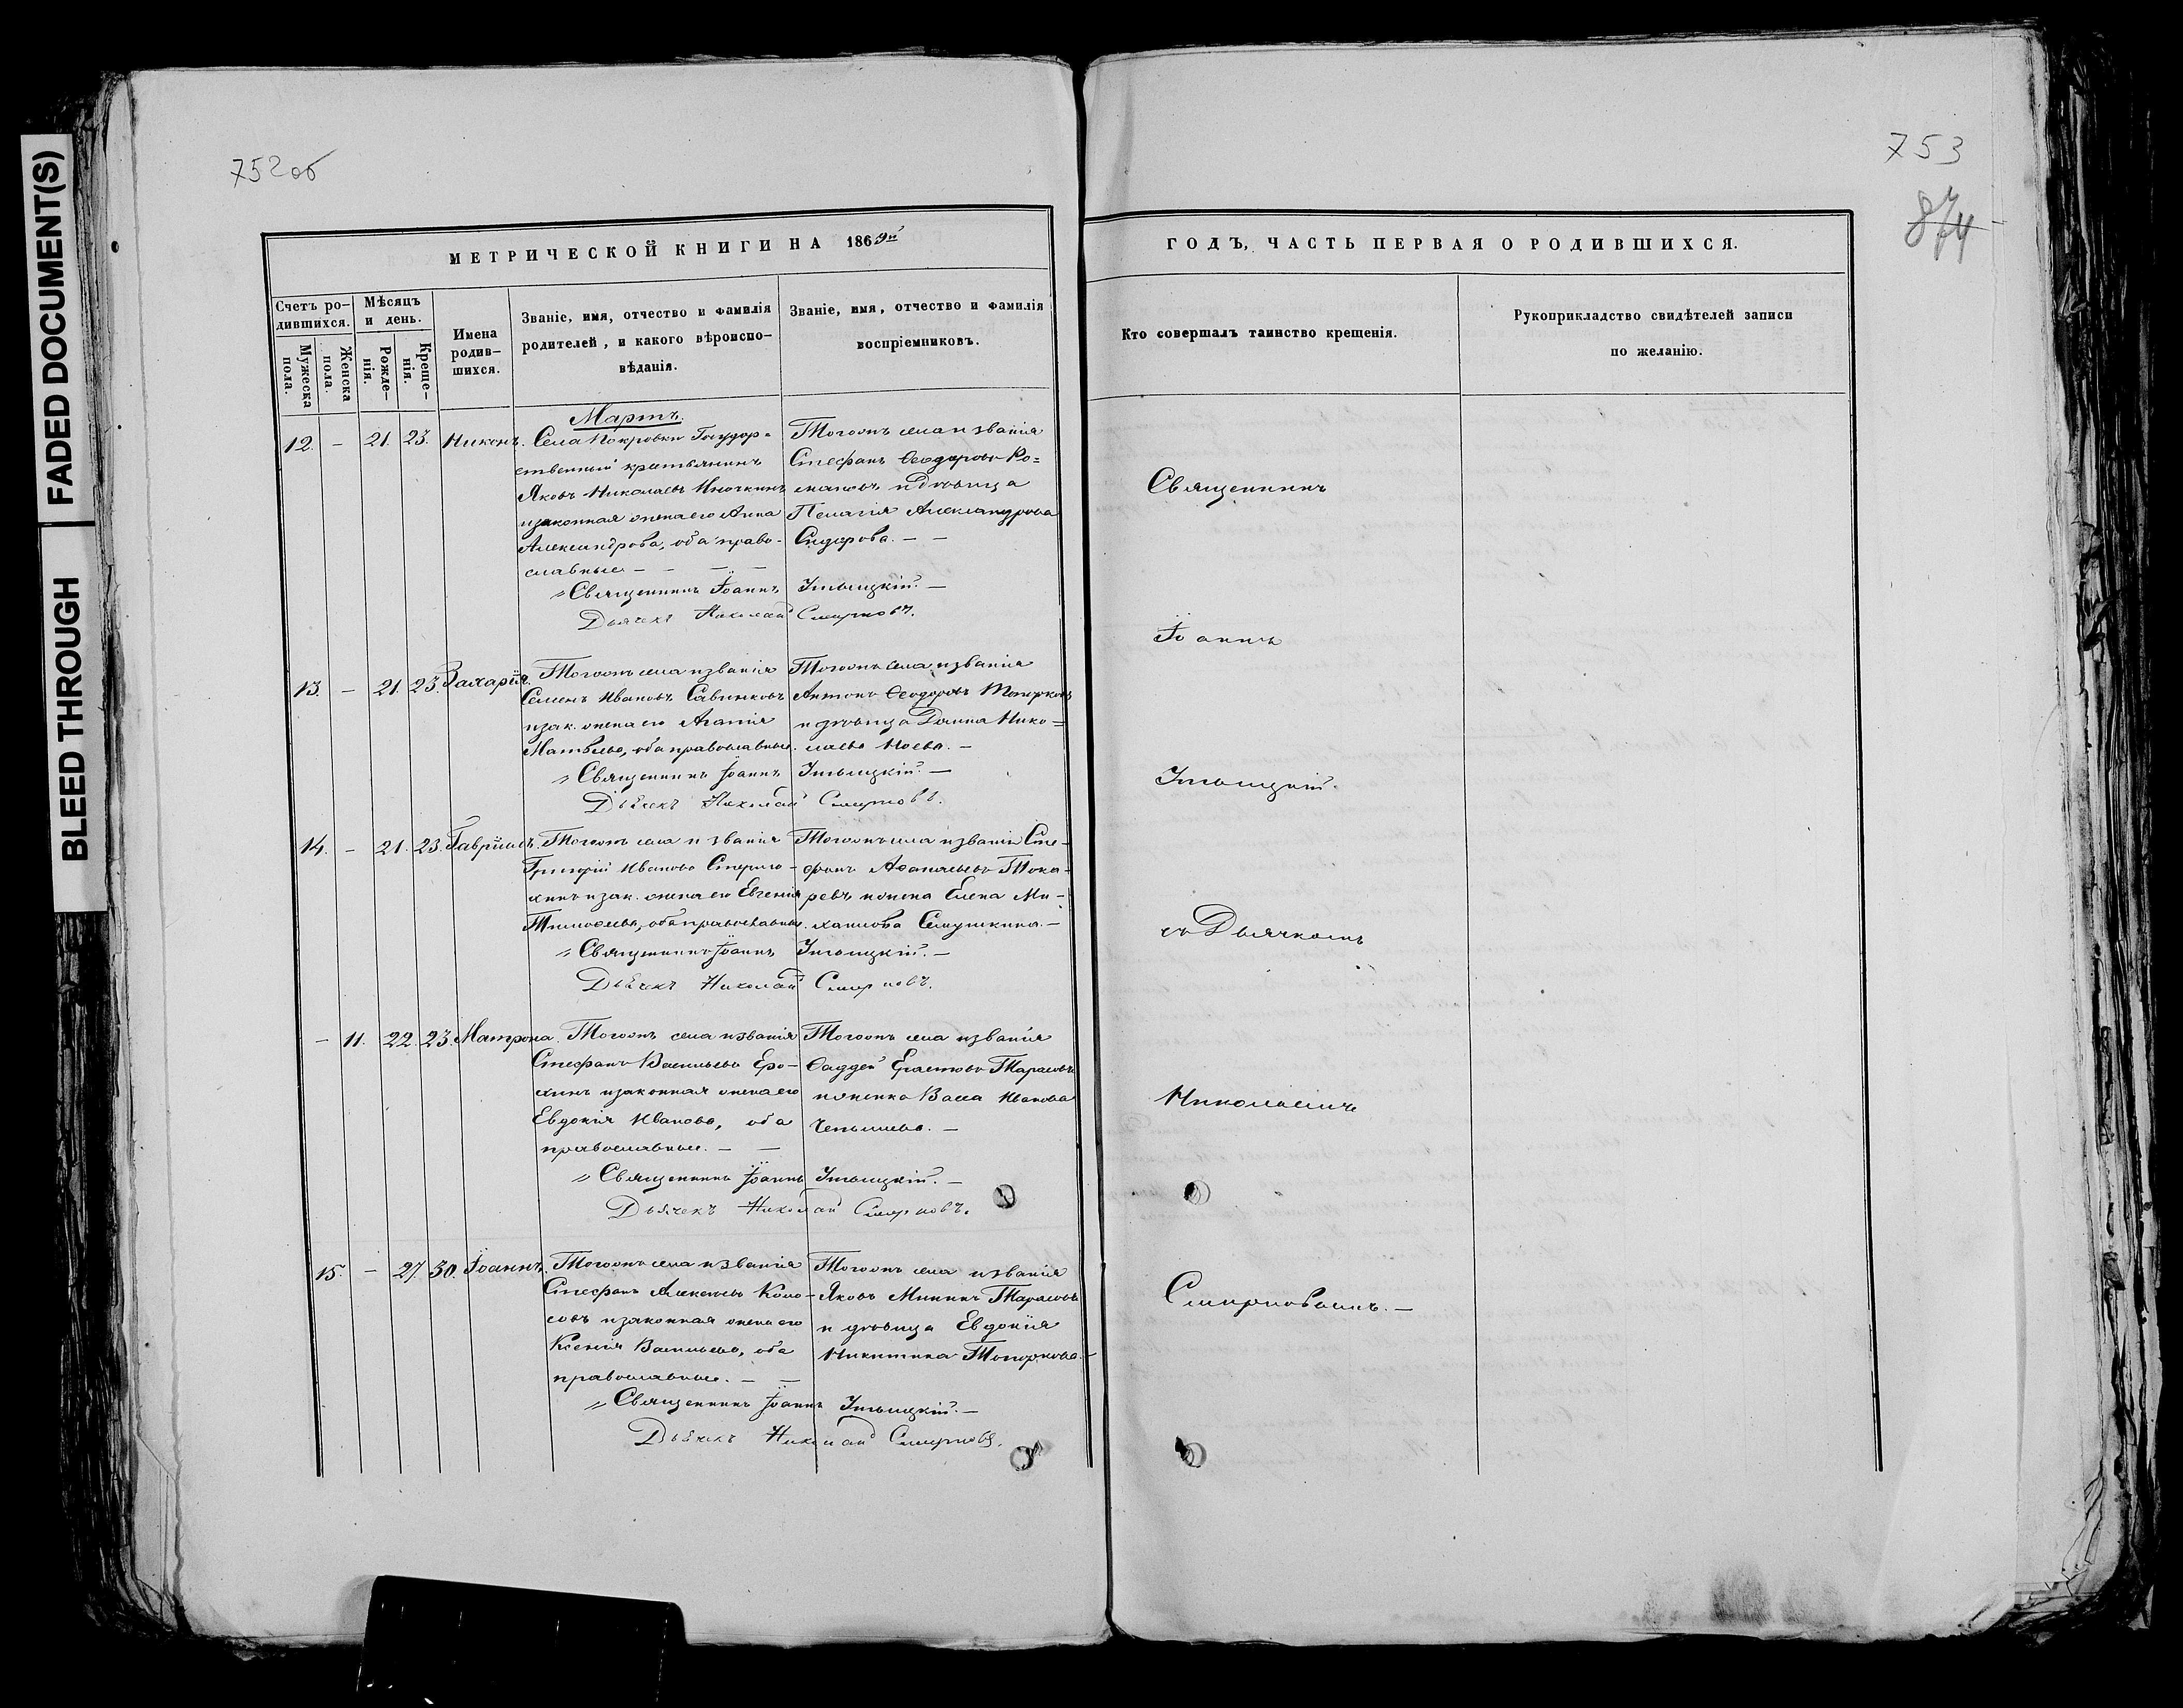 FADED DOCUMENT(S)
BLEED THROUGH
752об
МЕТРИЧЕСКОЙ КНИГИ НА 1869й
Счетъ ро-
дившихся.
Мужеска
пола.
Женска
пола.
Мѣсяцъ
и день.
Рожде-
нія.
Креще-
нія.
Имена
родив-
шихся.
Званіе, имя, отчество и фамилія
родителей, и какого вѣроиспо-
вѣданія.
Званіе, имя, отчество и фамилія
воспріемниковъ.
Мартъ.
12. - 21. 23. Никонъ.
Села Покровки Государ-
ственный крестьянинъ
Яковъ Николаевъ
и законная жена его Анна
Александрова, оба право-
славные - - - -
Тогоже села и званія
Стефанъ Ѳеодоровъ Ро=
мановъ и дѣвица
Пелагія Александрова
Сидорова. - -
Священникъ Іоаннъ
Дьячекъ Николай Смирновъ.
13. - 21. 23. Захарія.
Тогоже села и званія
Семенъ Ивановъ Савинковъ
и зак. жена его Агапія
Матвѣева, оба православные.
Тогоже села и званія
Антонъ Ѳеодоровъ Топорковъ
и дѣвица Нико=
лаева
Священникъ Іоаннъ
Дьячекъ Николай Смирновъ.
14. - 21. 23. Гавріилъ.
Тогоже села и званія
Григорій Ивановъ
и зак. жена его Евгенія
Тимоѳеева, оба православные.
Тогоже села и званія Сте-
фанъ Аѳанасьевъ Тока-
ревъ и жена Елена Ми-
хаилова Семушкина. -
Священникъ Іоаннъ
Дьячекъ Николай Смирновъ.
- 11. 22. 23. Матрона.
Тогоже села и званія
Стефанъ Васильевъ Еро-
хинъ и законная жена его
Евдокія Иванова, оба
православные. - -
Тогоже села и званія
Ѳаддей Тарасовъ
Васса Иванова
Священникъ Іоаннъ
Дьячекъ Николай Смирновъ.
15. - 27. 30. Іоаннъ.
Тогоже села и званія
Стефанъ Алексѣевъ Коло-
совъ и законная жена его
Ксенія Васильева, оба
православные. - -
Тогоже села и званія
Яковъ Мининъ Тарасовъ
и дѣвица Евдокія
Никитина Топоркова. -
Священникъ Іоаннъ
Дьячекъ Николай Смирновъ.
753
874
ГОДЪ, ЧАСТЬ ПЕРВАЯ О РОДИВШИХСЯ.
Кто совершалъ таинство крещенія.
Рукоприкладство свидѣтелей записи
по желанію.
Священникъ
Іоаннъ
съ Дьячкомъ
Николаемъ
Смирновымъ. -